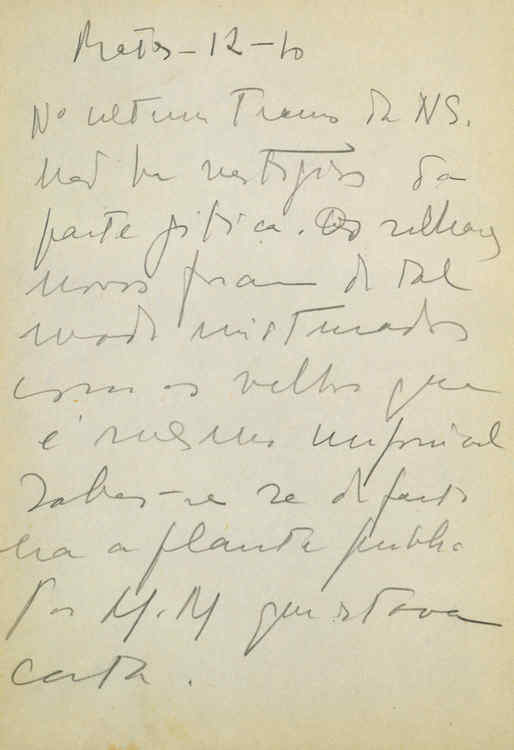 -12-
No ultimo Tramo da NS.
não ha vestigios da
parte gotica. Os silhares
novos foram de tal
modo misturados
com os velhos que
é mesmo impossivel
saber-se se de facto
era a planta
por M.M que estava
certa.